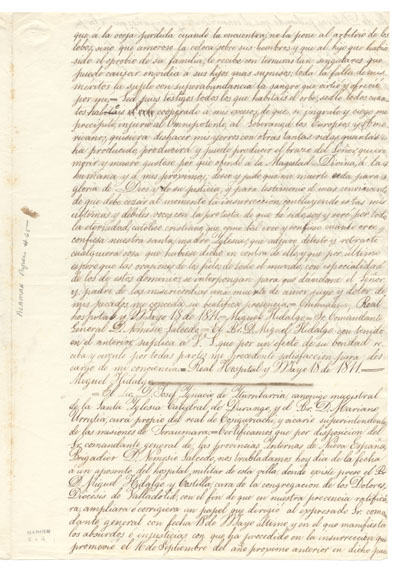 que á la oveja perdida cuando la encuentra, no la pone al arbitrio de los
lobos, sino que amoroso la coloca sobre sus hombros y que al hijo que habia
sido el oprobio de su familia, le recibe con ternuras tan singulares que
puede causar envidia á sus hijos mas sumisos; toda la falta de mis
meritos la suple con superabundancia la sangre que vertio y ofrecio
por mi. Sed pues testigos todos los que habitais el orbe, sed lo todos cuan
tos habeis cooperado á mis excesos, de que, si ingrato y ciego me
precipité, injurie al Omnipotente, al Soberano, á los Europeos y Ame
ricanos, quisiera deshacer mis yerros con otras tantas vidas cuantas
ha producido, producirá y puede producir el brazo del Señor; quiero
morir y muero gustoso por que ofendi á la Magestad Divina, á las
humanas y á mis proximos; deseo y pido que mi muerte ceda para la
gloria de Dios y de su justicia, y para testimonio el mas convincente
de que debe cesar al momento la insurreccion, concluyendo estas mis
ultimas y debiles voces con la protesta de que he sido, soy y seré por toda
la eternidad, católico cristiano, que como tal creo y confieso cuanto cree y
confiesa nuestra santa madre Iglesia, que abjuro, detesto y retracto
cualquiera cosa que hubiese dicho en contra de ello, y que por ultimo
espero que las oraciones de los fieles de todo el mundo, con especialidad
de los de estos dominios se interpongan para que dandome el Señor
y padre de misericordias una muerte de amor suyo y dolor de
mis pecados, me conceda su beatifica presencia = Chihuahua, Real
hospital y Mayo 18 de 1811 = Miguel Hidalgo = Sr. Comandante
General D. Nemesio Salcedo = El Br. D. Miguel Hidalgo, con tenido
en el anterior suplica á V. S. que por un efecto de su bondad re
ciba y dirija por todas partes, mi precedente satisfaccion para des
cargo de mi conciencia = Real Hospital y Mayo 18 de 1811. =
Miguel Hidalgo
El Lic. D. Josef Ignacio de Iturribarria, canonigo magistral
de la Santa Iglesia Catedral de Durango, y el Br. D. Mariano
Urrutia, cura propio del real de Cosiguriachi y vicario superintendente
de las misiones de Taraumara = Certificamos que por disposicion del
Sr. comandante general de las provincias Internas de Nueva España,
Brigadier D. Nemesio Salcedo, nos trasladamos hoy dia de la fecha
á un aposento del hospital militar de esta villa donde existe preso el Br.
D. Miguel Hidalgo y Costilla, cura de la congregacion de los Dolores,
Diócesis de Valladolid, con el fin de que en nuestra presencia ratifica
ra, ampliara ó corrigiera un papel que dirigio al expresado Sr. coman
dante general con fecha 18 de Mayo ultimo y en el que manifiesta
los absurdos é injusticias con que ha procedido en la insurreccion que
promovió el 16 de Septiembre del año proximo anterior en dicho pue